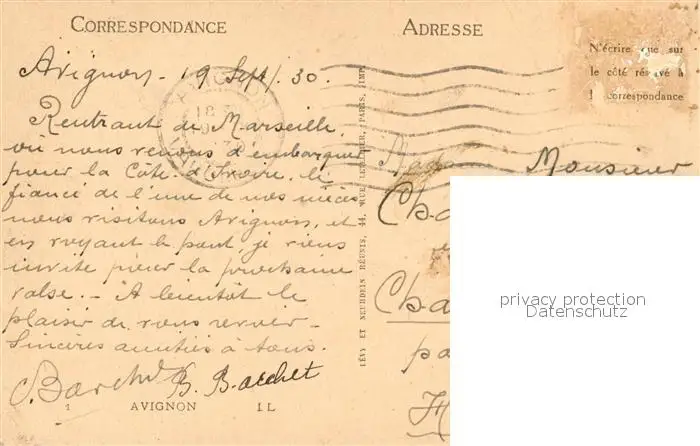 CORRESPONDANCE
ADRESSE
N'écrire que sur
le côté réservé à
l correspondance
Avignon - 19 Sept/. 30.
Rentrant de Marseille,
où nous venons d'embarquer
pour la Côte d'Ivoire, le
fiancé de l'une de nos nièces
nous visitons Avignon, et
en voyant le pont, je viens
invite pour la prochaine
valse. - A bientôt le
plaisir de vous revoir -
Sincères amitiés à tous.
B. Barchet
1 AVIGNON LL
LÉVY ET NEURDEIN RÉUNIS, 44, RUE LETELLIER, PARIS, IMP.
Monsieur
privacy protection
Datenschutz